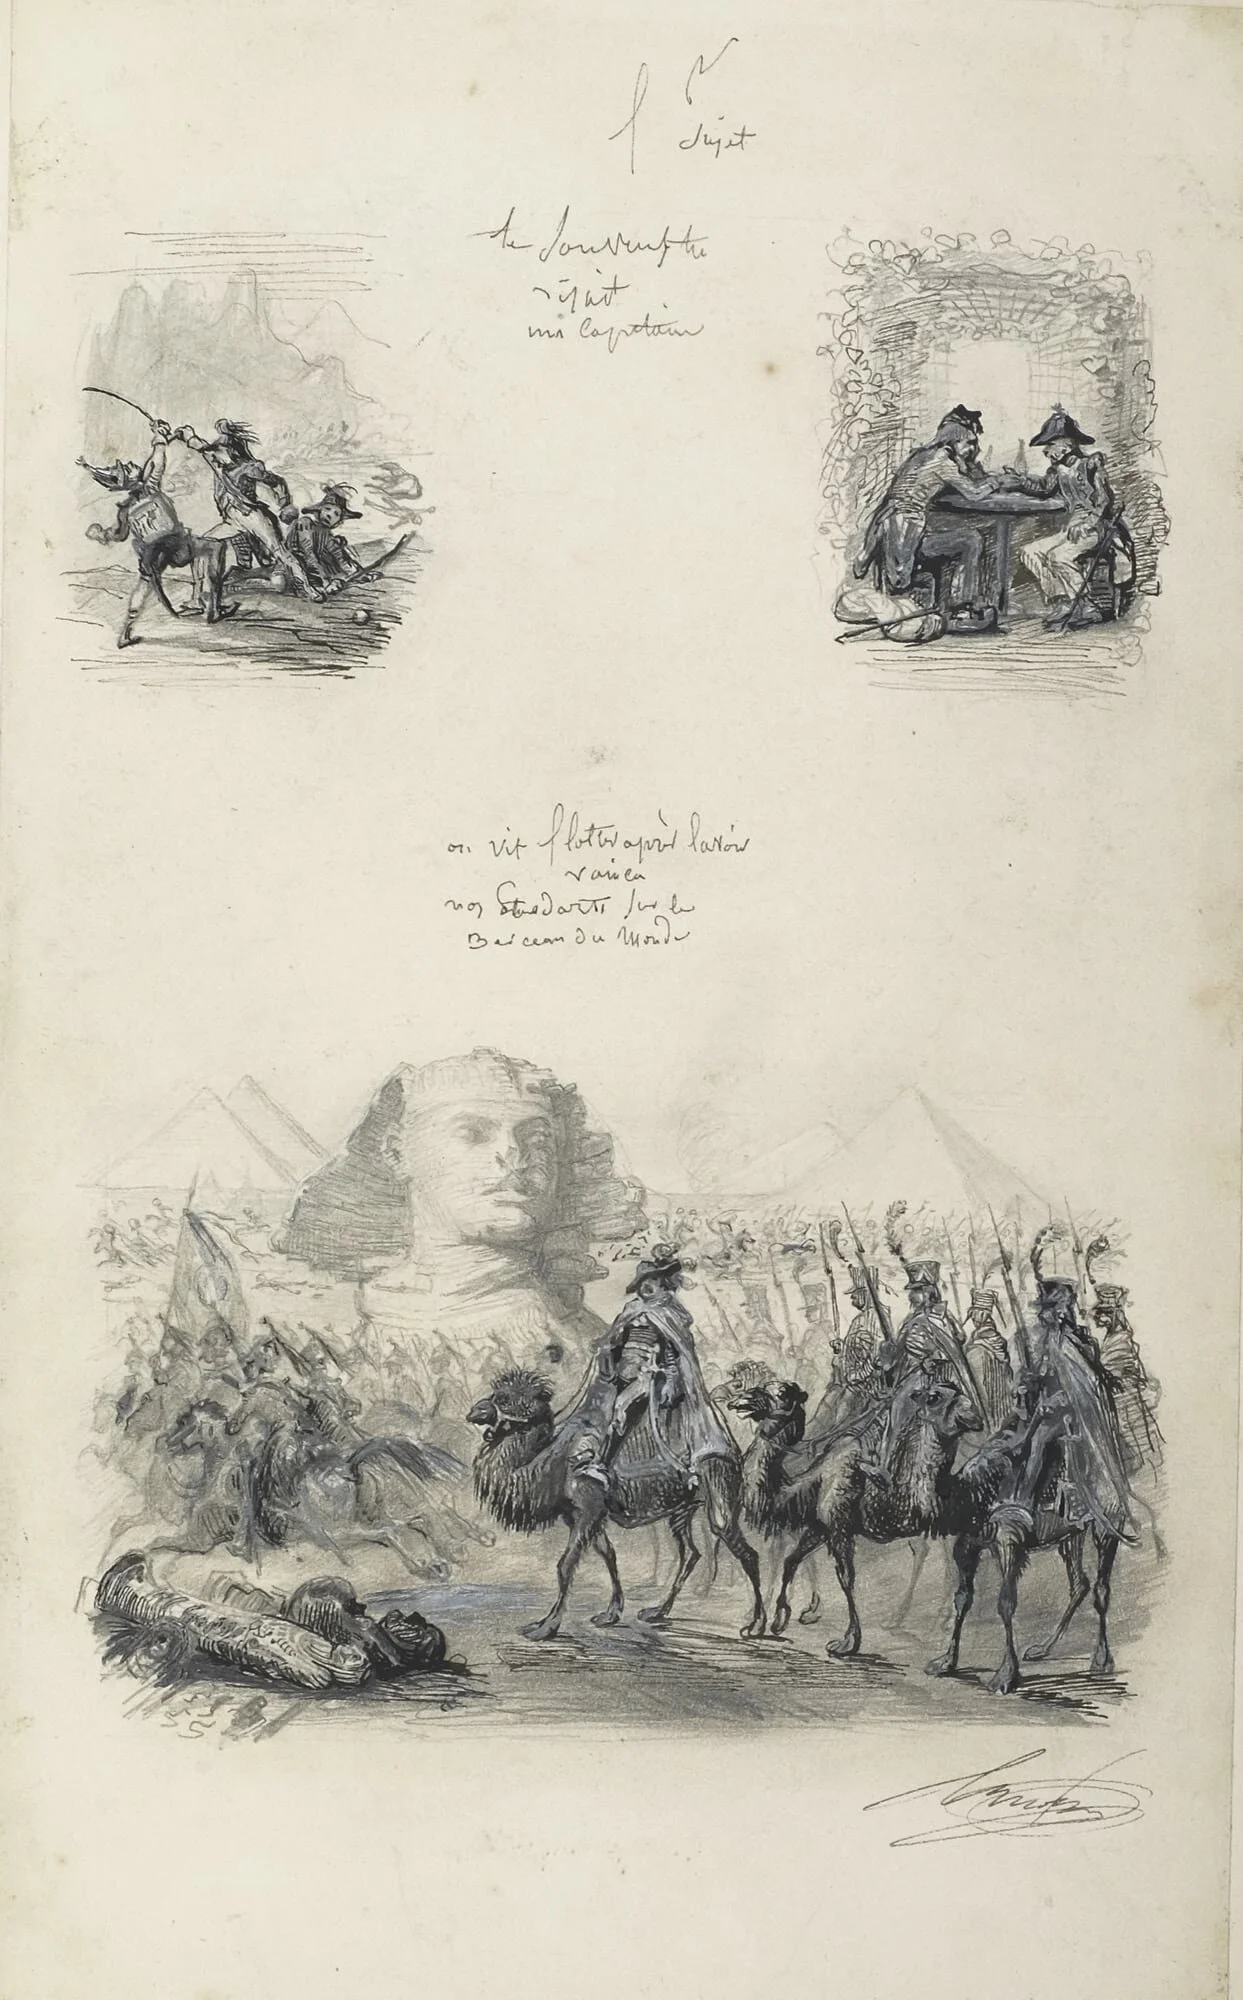 1 er
sujet
te souviens tu
disait
un Capitaine
on vit flotter après l'avoir
vaincu
nos Etendarts sur le
Berceau du Monde